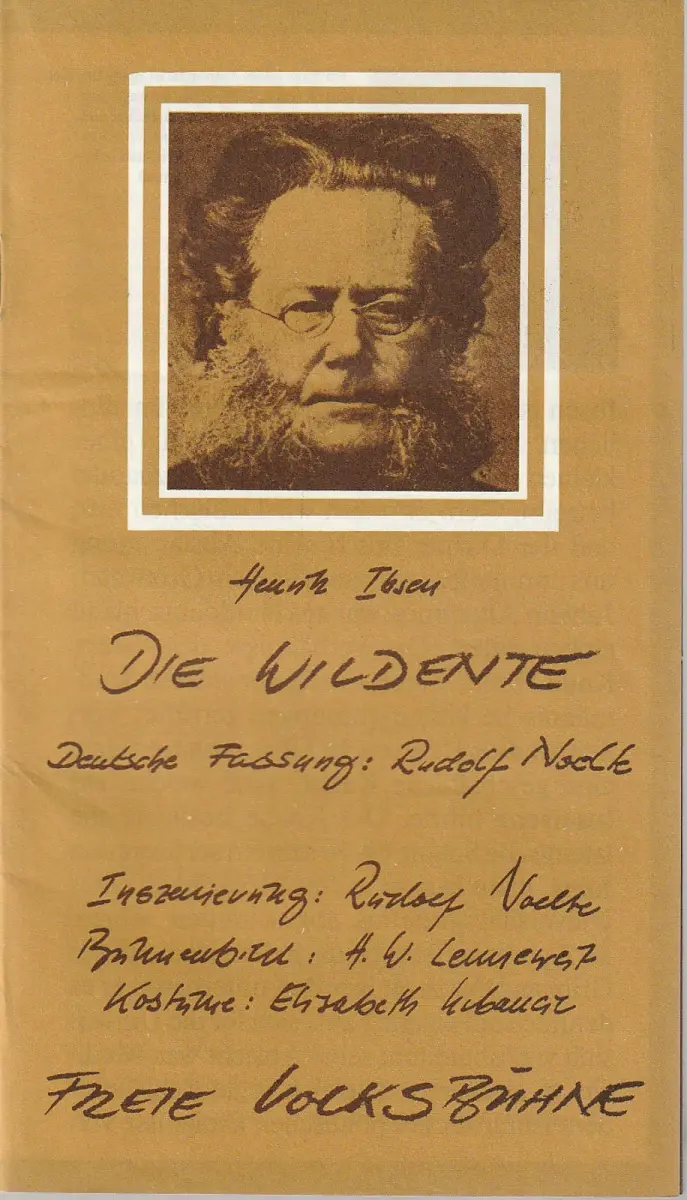 Henrik Ibsen
DIE WILDENTE
Deutsche Fassung: Rudolf Noelte
Inszenierung: Rudolf Noelte
Bühnenbild: H. W. Lenneweit
Kostüme: Elisabeth Urbancic
FREIE VOLKSBÜHNE